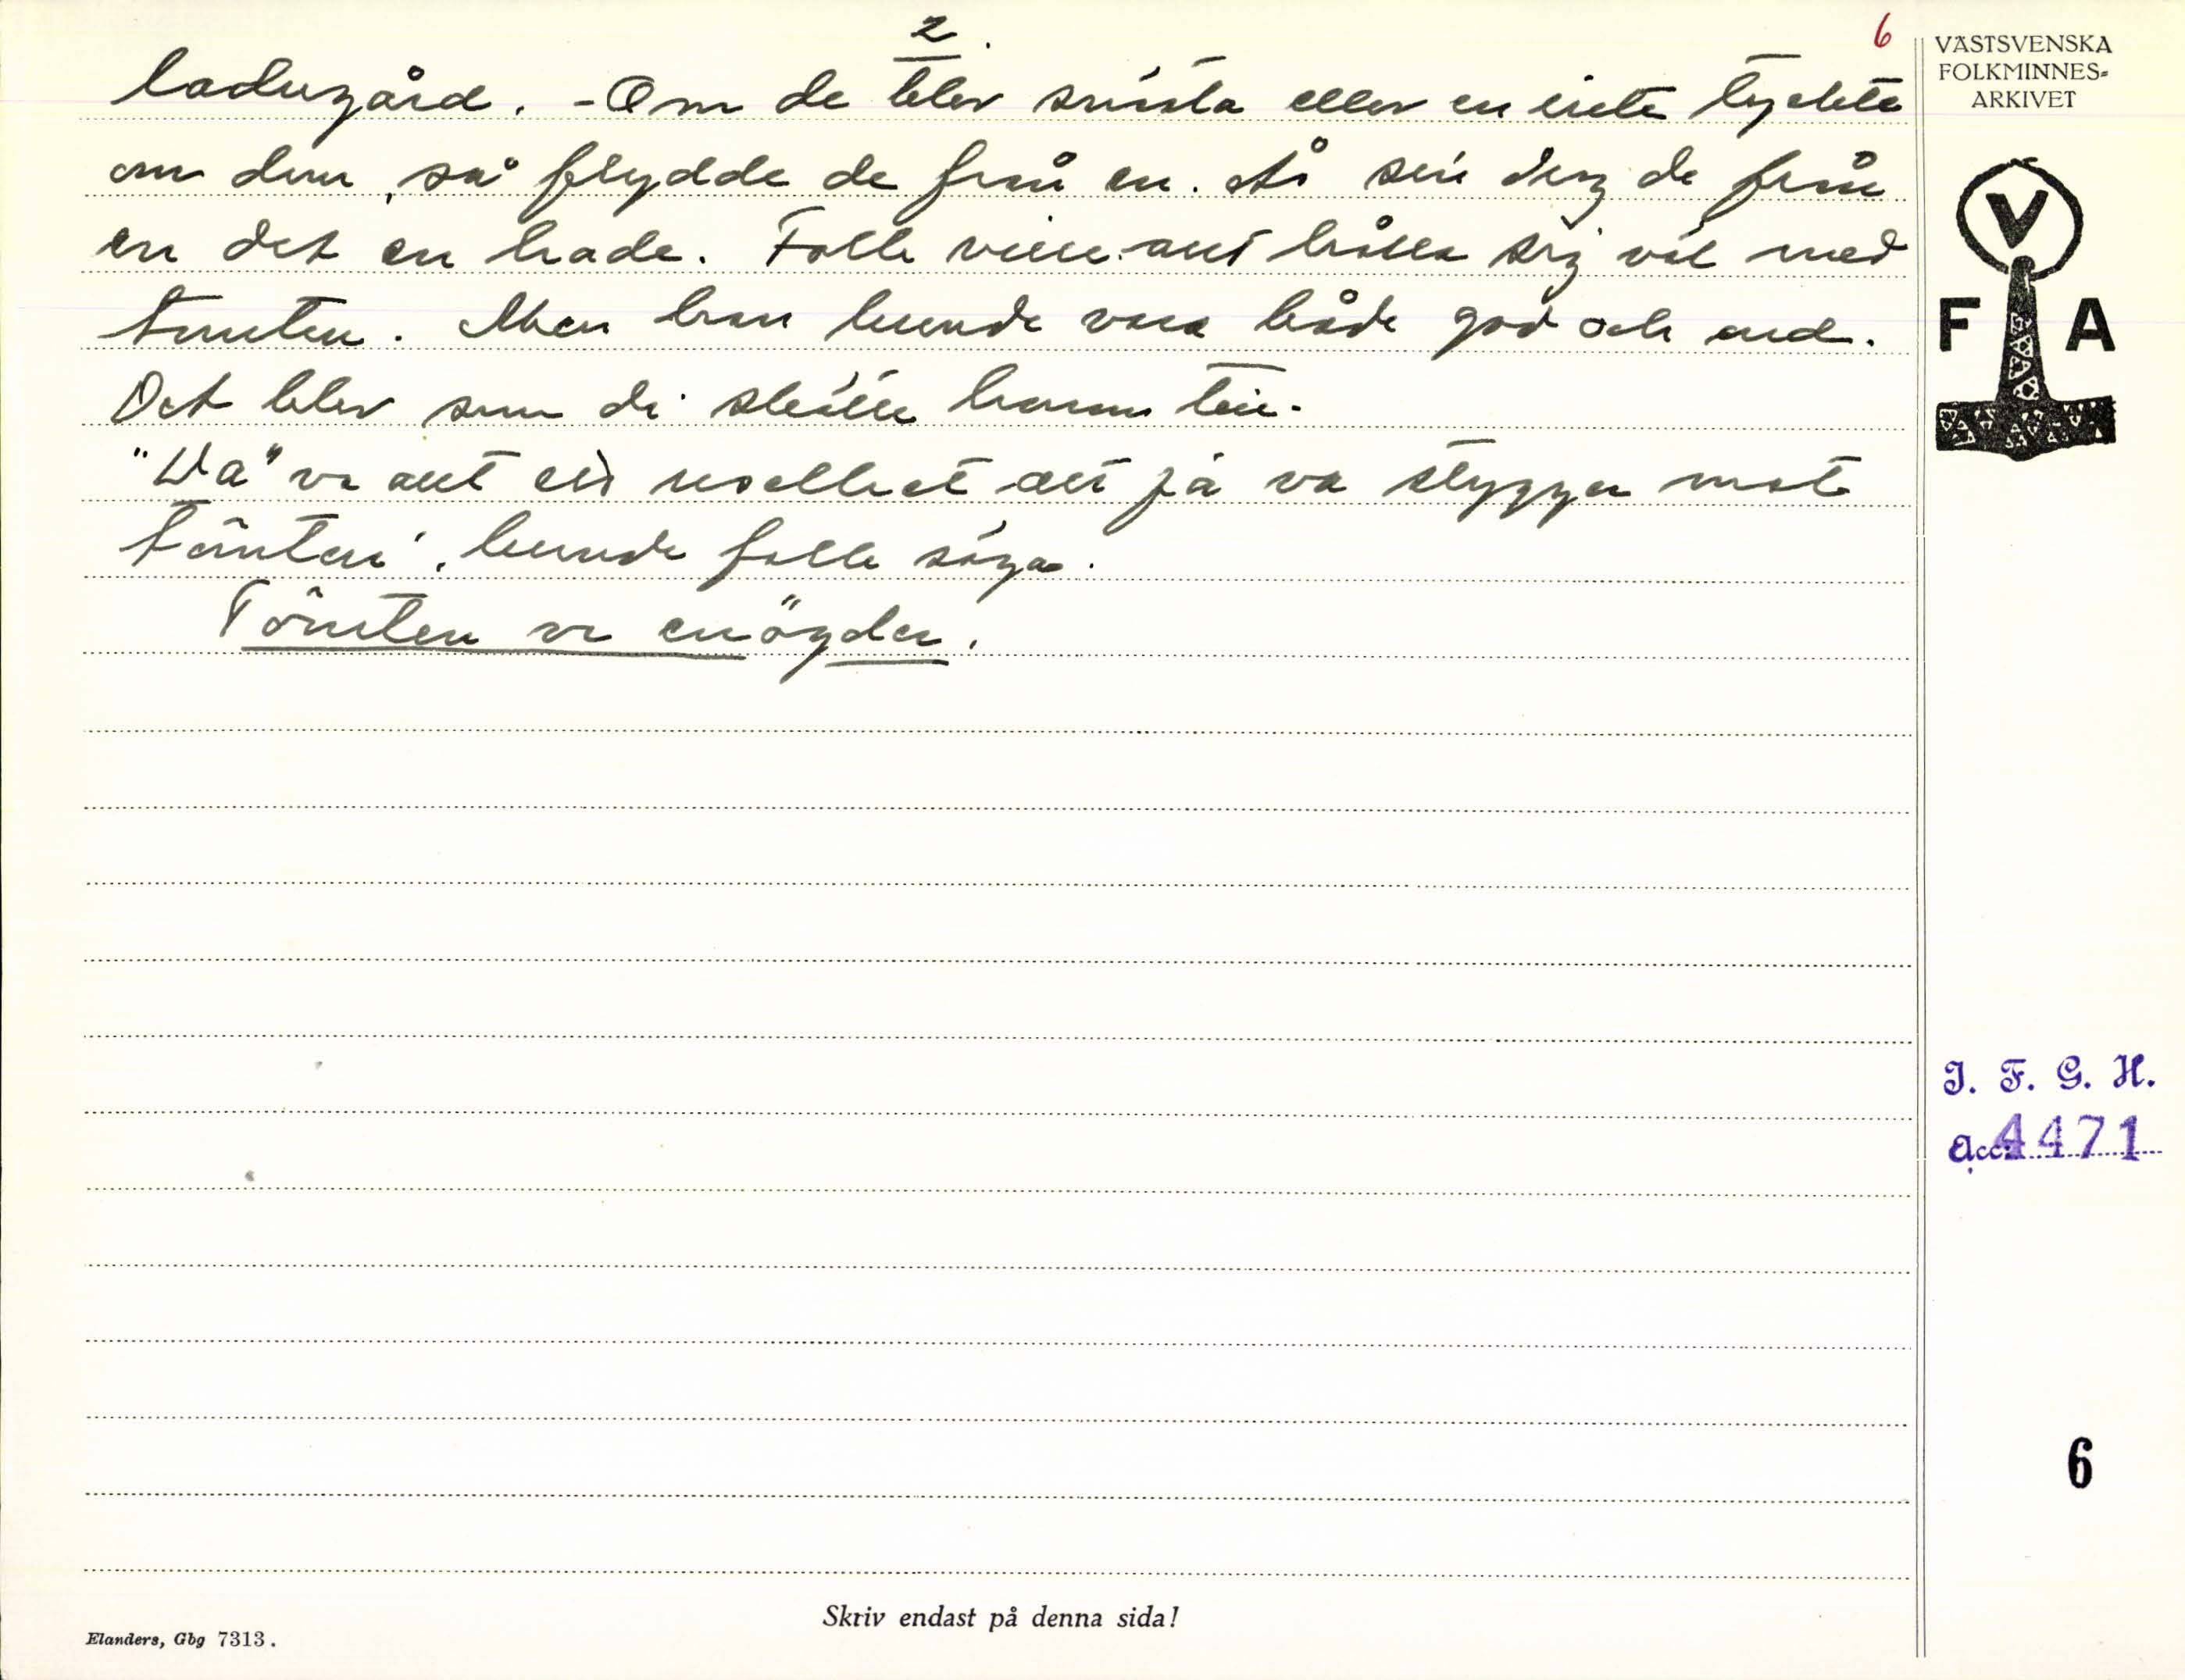 2.
6
ladugård. - Om de blev snåsta eller en inte tyckte
om dem, så flydde de från en. Å sen dög de från
en det en hade. Folk ville allt hålla sig väl med
tomten. Men han kunde vara både god och ond.
Det blev som di ställde honom till.
"Da" va allt ett uselhet att få va stygger mot
tömten", kunde folk säga.
Tömten va enögder.
VÄSTSVENSKA
FOLKMINNES-
ARKIVET
V
F A
I. F. G. H.
Acc. 4471
6
Skriv endast på denna sida!
Elanders, Gbg 7313.